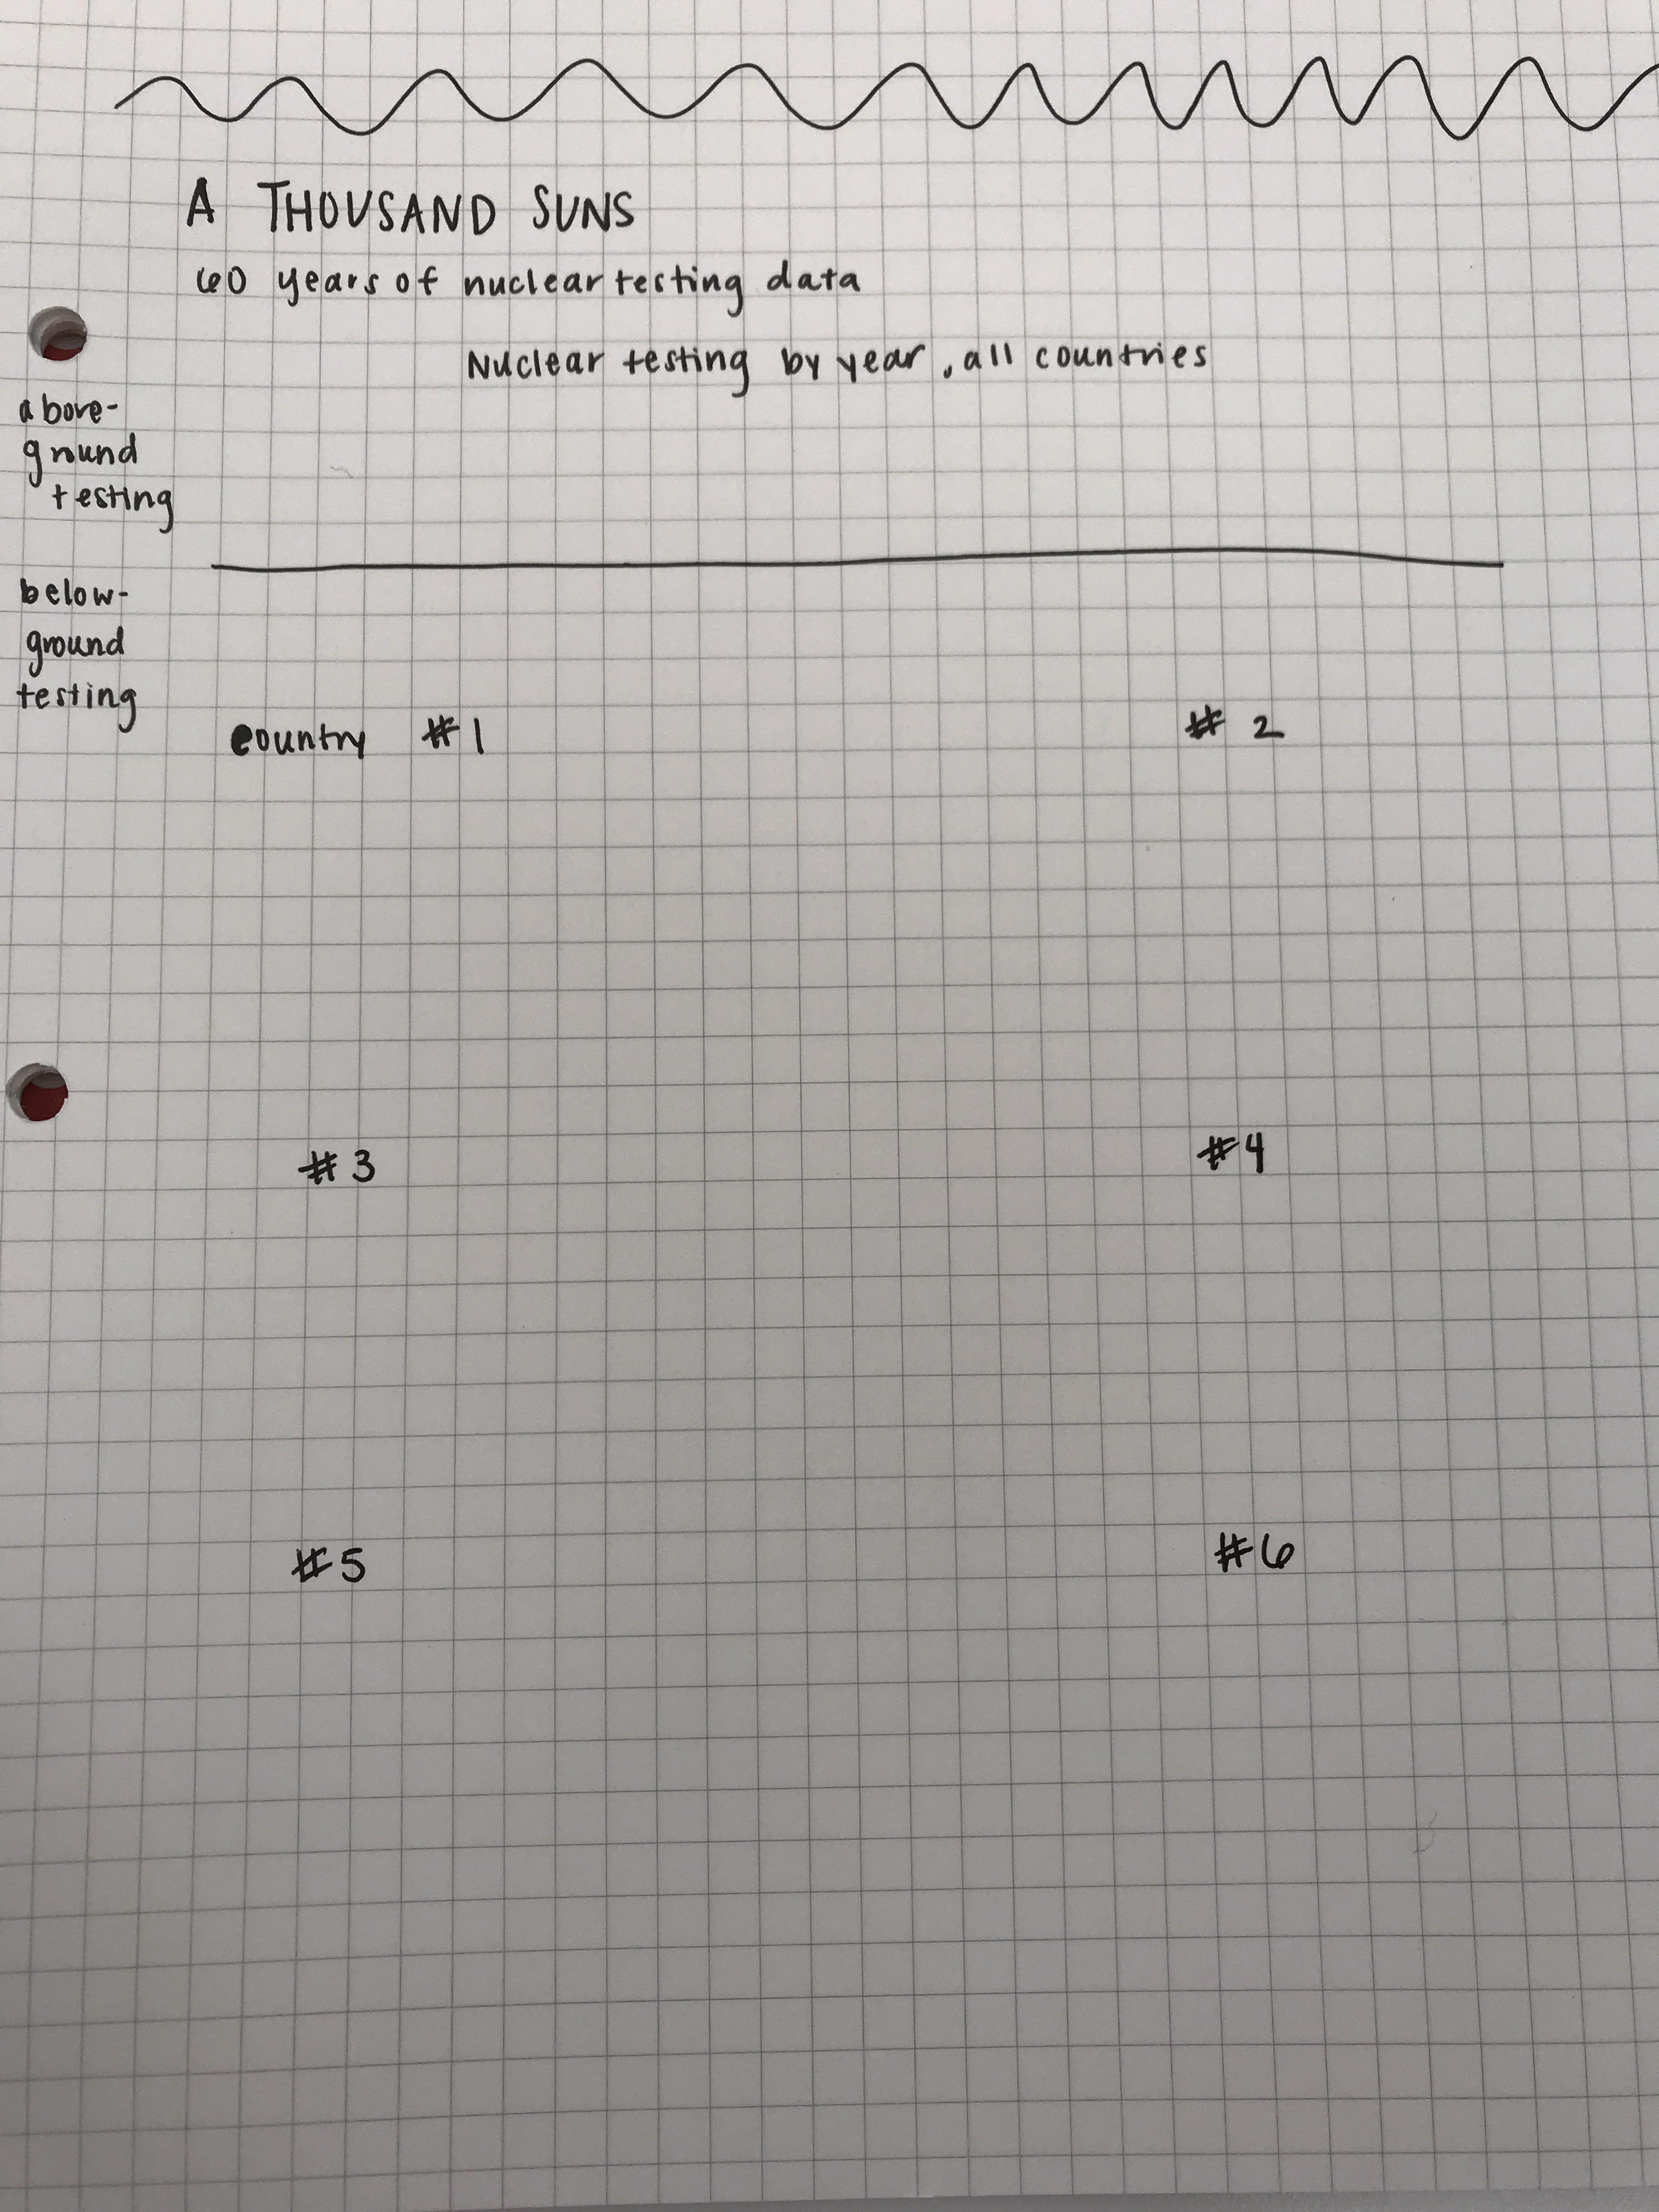 A THOUSAND SUNS
60 years of nuclear testing data
Nuclear testing by year, all countries
above-
ground
testing
below-
ground
testing
country #1
#2
#3
#4
#5
#6